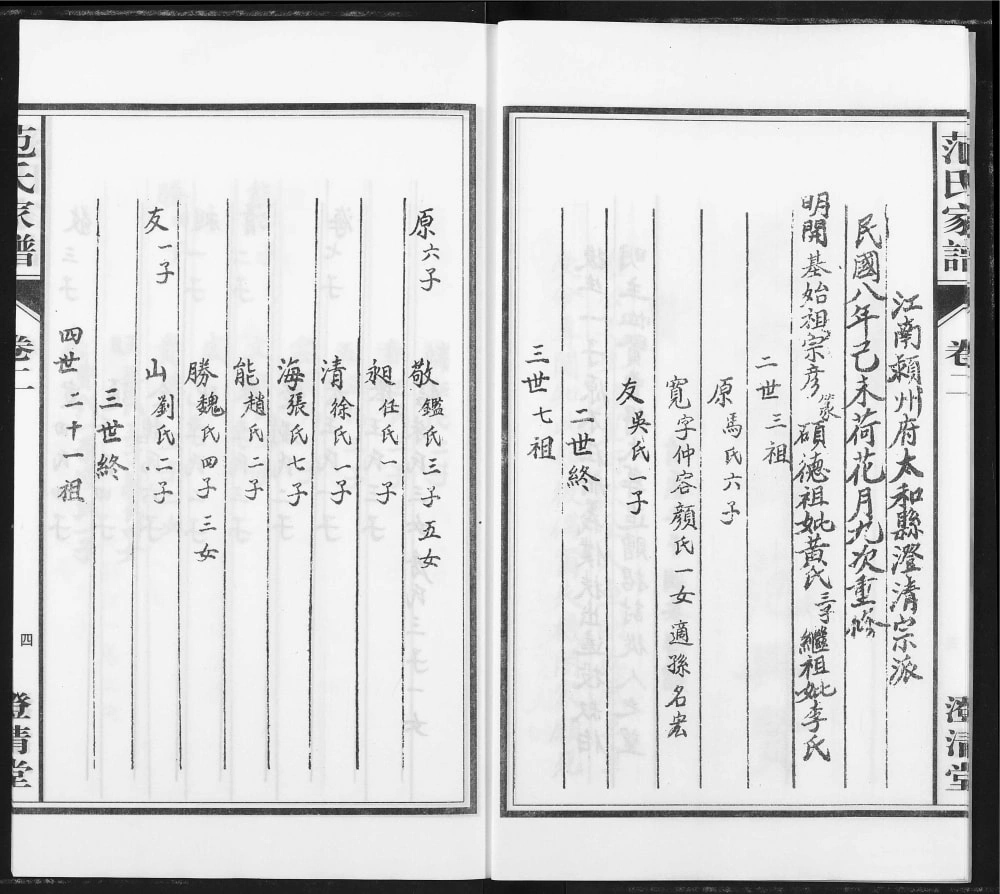 范氏家譜
卷二
澄清堂
江南頼州府太和縣澄清宗派
民國八年己未荷花月九次重修
明開基始祖宗彦篆碩德祖妣黃氏三子繼祖妣李氏
二世三祖
原馬氏六子
寬字仲容顏氏一女適孫名宏
友吳氏一子
二世終
三世七祖
原六子
敬鑑氏三子五女
昶任氏一子
清徐氏一子
海張氏七子
能趙氏二子
勝魏氏四子三女
友一子
山劉氏二子
三世終
四世二十一祖
范氏家譜
卷二
四
澄清堂